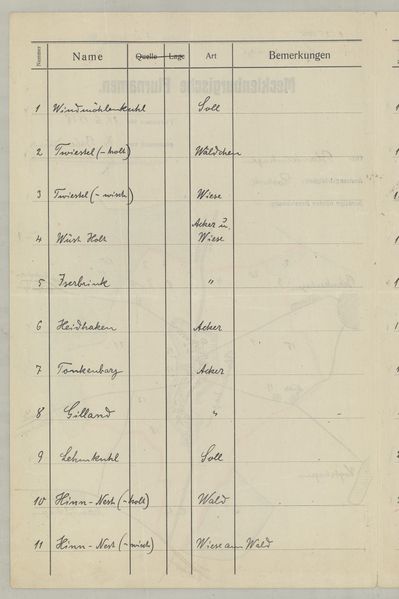 Nummer Name Quelle Lage Art Bemerkungen
1 Windmöhlenkuhl Soll
2 Twiestel (-holt) Wäldchen
3 Twiestel (-wisch) Wiese
Acker u.
4 Wüst Holt Wiese
5 Iserbrink "
6 Heidhaken Acker
7 Tonkenborg Acker
8 Gilland "
9 Lehmkuhl Soll
10 Hinn-Nest (-holt) Wald
11 Hinn-Nest (-wisch) Wiese am Wald
Mecklenburgische Flurnamen.